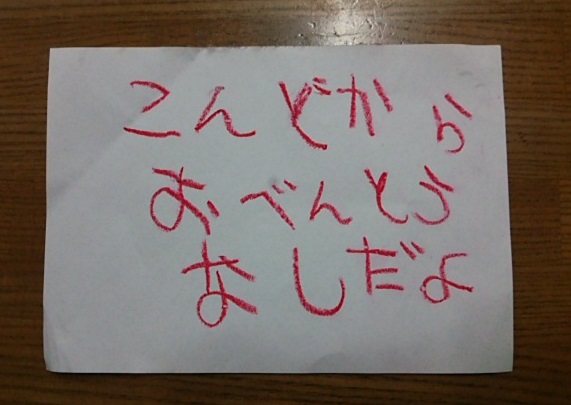 こんどから
おべんとう
なしだよ